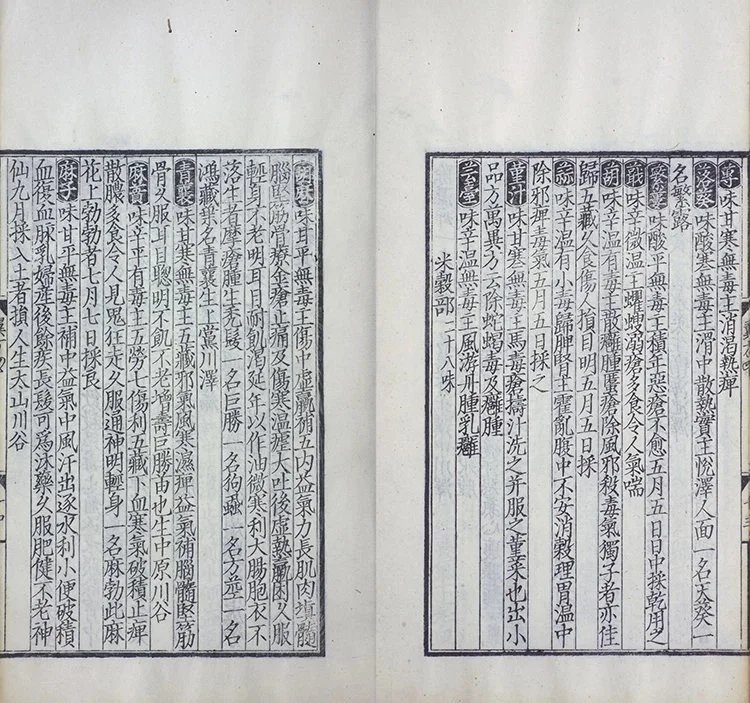 蓴味甘寒無毒主消渴熱痹
落葵味酸寒無毒主滑中散熱實主悅澤人面一名天葵一
名繁露
蘩蔞味酸平無毒主積年惡瘡不愈五月五日日中採乾用之
蕺味辛微温主蠼螋溺瘡多食令人氣喘
葫味辛温有毒主散癰腫䘌瘡除風邪殺毒氣獨子者亦佳
歸五藏久食傷人損目明五月五日採
蒜味辛温有小毒歸脾腎主霍亂腹中不安消穀理胃温中
除邪痹毒氣五月五日採之
堇汁味甘寒無毒主馬毒瘡擣汁洗之并服之堇菜也出小
品方萬畢方云除蛇蝎毒及癰腫
芸臺味辛温無毒主風游丹腫乳癰
米穀部二十八味
胡麻味甘平無毒主傷中虛羸補五内益氣力長肌肉填髓
腦堅筋骨療金瘡止痛及傷寒温瘧大吐後虛熱羸困久服
輕身不老明耳目耐飢渴延年以作油微寒利大腸胞衣不
落生者摩瘡腫生禿髮一名巨勝一名狗蝨一名方莖一名
鴻藏葉名青蘘生上黨川澤
青蘘味甘寒無毒主五藏邪氣風寒濕痹益氣補腦髓堅筋
骨久服耳目聰明不飢不老增壽巨勝苗也生中原川谷
麻蕡味辛平有毒主五勞七傷利五藏下血寒氣破積止痹
散膿多食令人見鬼狂走久服通神明輕身一名麻勃此麻
花上勃勃者七月七日採良
麻子味甘平無毒主補中益氣中風汗出逐水利小便破積
血復血脉乳婦產後餘疾長髮可爲沐藥久服肥健不老神
仙九月採入土者損人生太山川谷